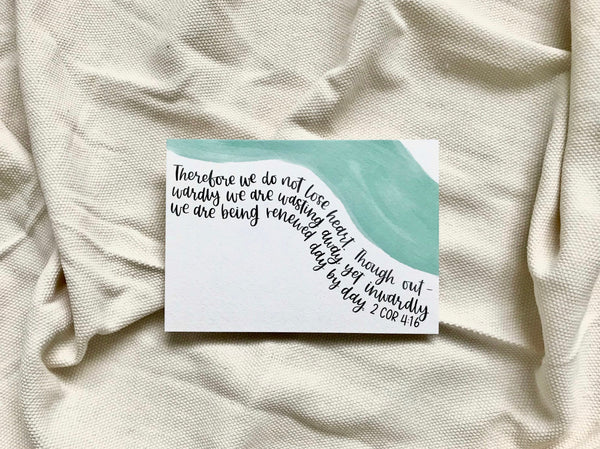 Therefore we do not lose heart. Though out-
wardly we are wasting away, yet inwardly
we are being renewed day by day. 2 COR 4:16